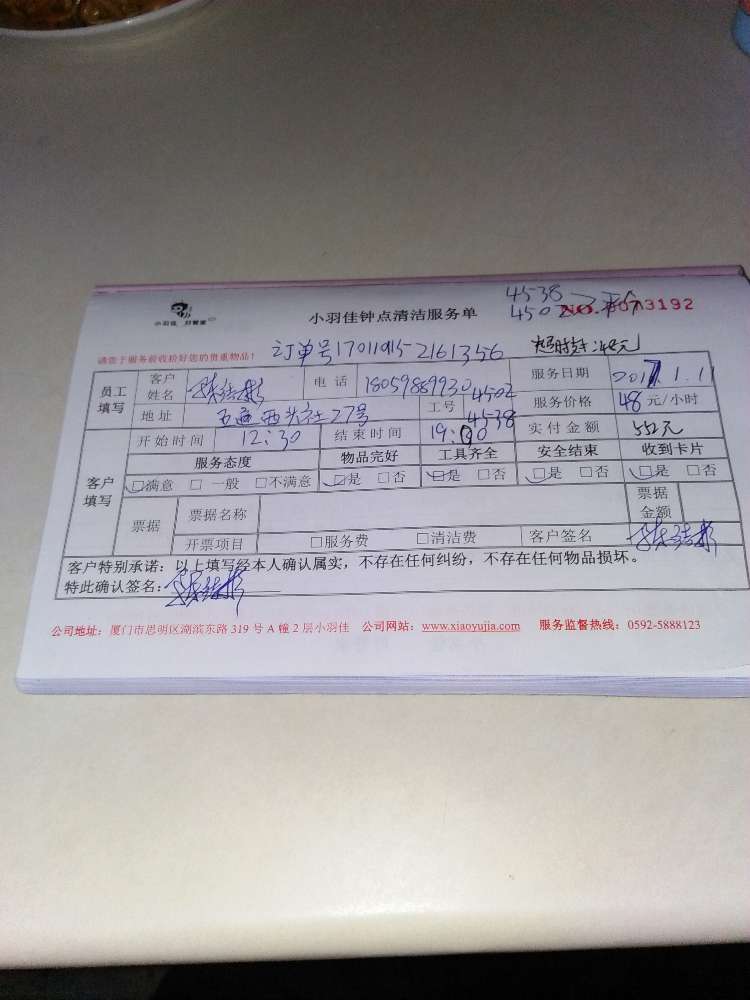 4538
4502 平价
小羽佳 好管家
小羽佳钟点清洁服务单
NO.
073192
请您于服务前收拾好您的贵重物品!
订单号17011915-2161356
超时长:48元
员工填写 客户姓名 电话 18059889930 服务日期 2017.1.11
地址 五通西头社27号 工号 4502 4538 服务价格 48 元/小时
开始时间 12:30 结束时间 19:00 实付金额 552元
客户填写 服务态度 物品完好 工具齐全 安全结束 收到卡片
□满意 □一般 □不满意 □是 □否 □是 □否 □是 □否 □是 □否
票据 票据名称 票据金额
开票项目 □服务费 □清洁费 客户签名
客户特别承诺:以上填写经本人确认属实,不存在任何纠纷,不存在任何物品损坏。
特此确认签名:
公司地址:厦门市思明区湖滨东路 319 号 A 幢 2 层小羽佳 公司网站:www.xiaoyujia.com 服务监督热线:0592-5888123